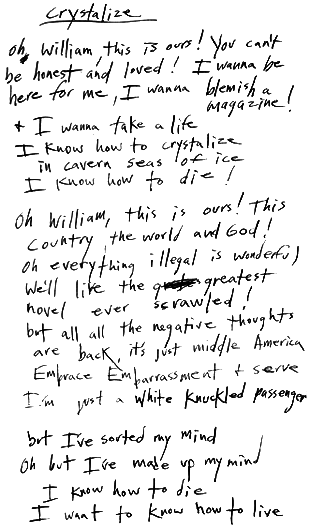 Crystalize
oh, William, this is ours! You can't
be honest and loved! I wanna be
here for me, I wanna blemish a
magazine!
+ I wanna take a life
I know how to crystalize
in cavern seas of ice
I know how to die!
Oh William, this is ours! This
Country, the world and God!
Oh everything illegal is wonderful
We'll live the greatest
novel ever scrawled!
but all all the negative thoughts
are back, it's just middle America
Embrace Embarrassment + serve
I'm just a White Knuckled passenger
but I've sorted my mind
Oh but I've made up my mind
I know how to die
I want to know how to live